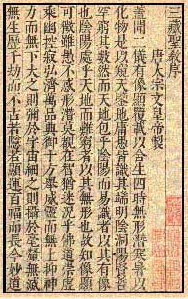 三藏聖教序
唐太宗文皇帝製
蓋聞二儀有像顯覆載以含生四時無形潛寒暑以
化物是以窺天鑒地庸愚皆識其端明陰洞陽賢哲
罕窮其數然而天地包乎陰陽而易識者以其有像
也陰陽處乎天地而難窮者以其無形也故知像顯
可徵雖愚不惑形潛莫覩在智猶迷況乎佛道崇虛
乘幽控寂弘濟萬品典御十方舉威靈而無上抑神
力而無下大之則彌於宇宙細之則攝於毫釐無滅
無生歷千劫而不古若隱若顯運百福而長今妙道